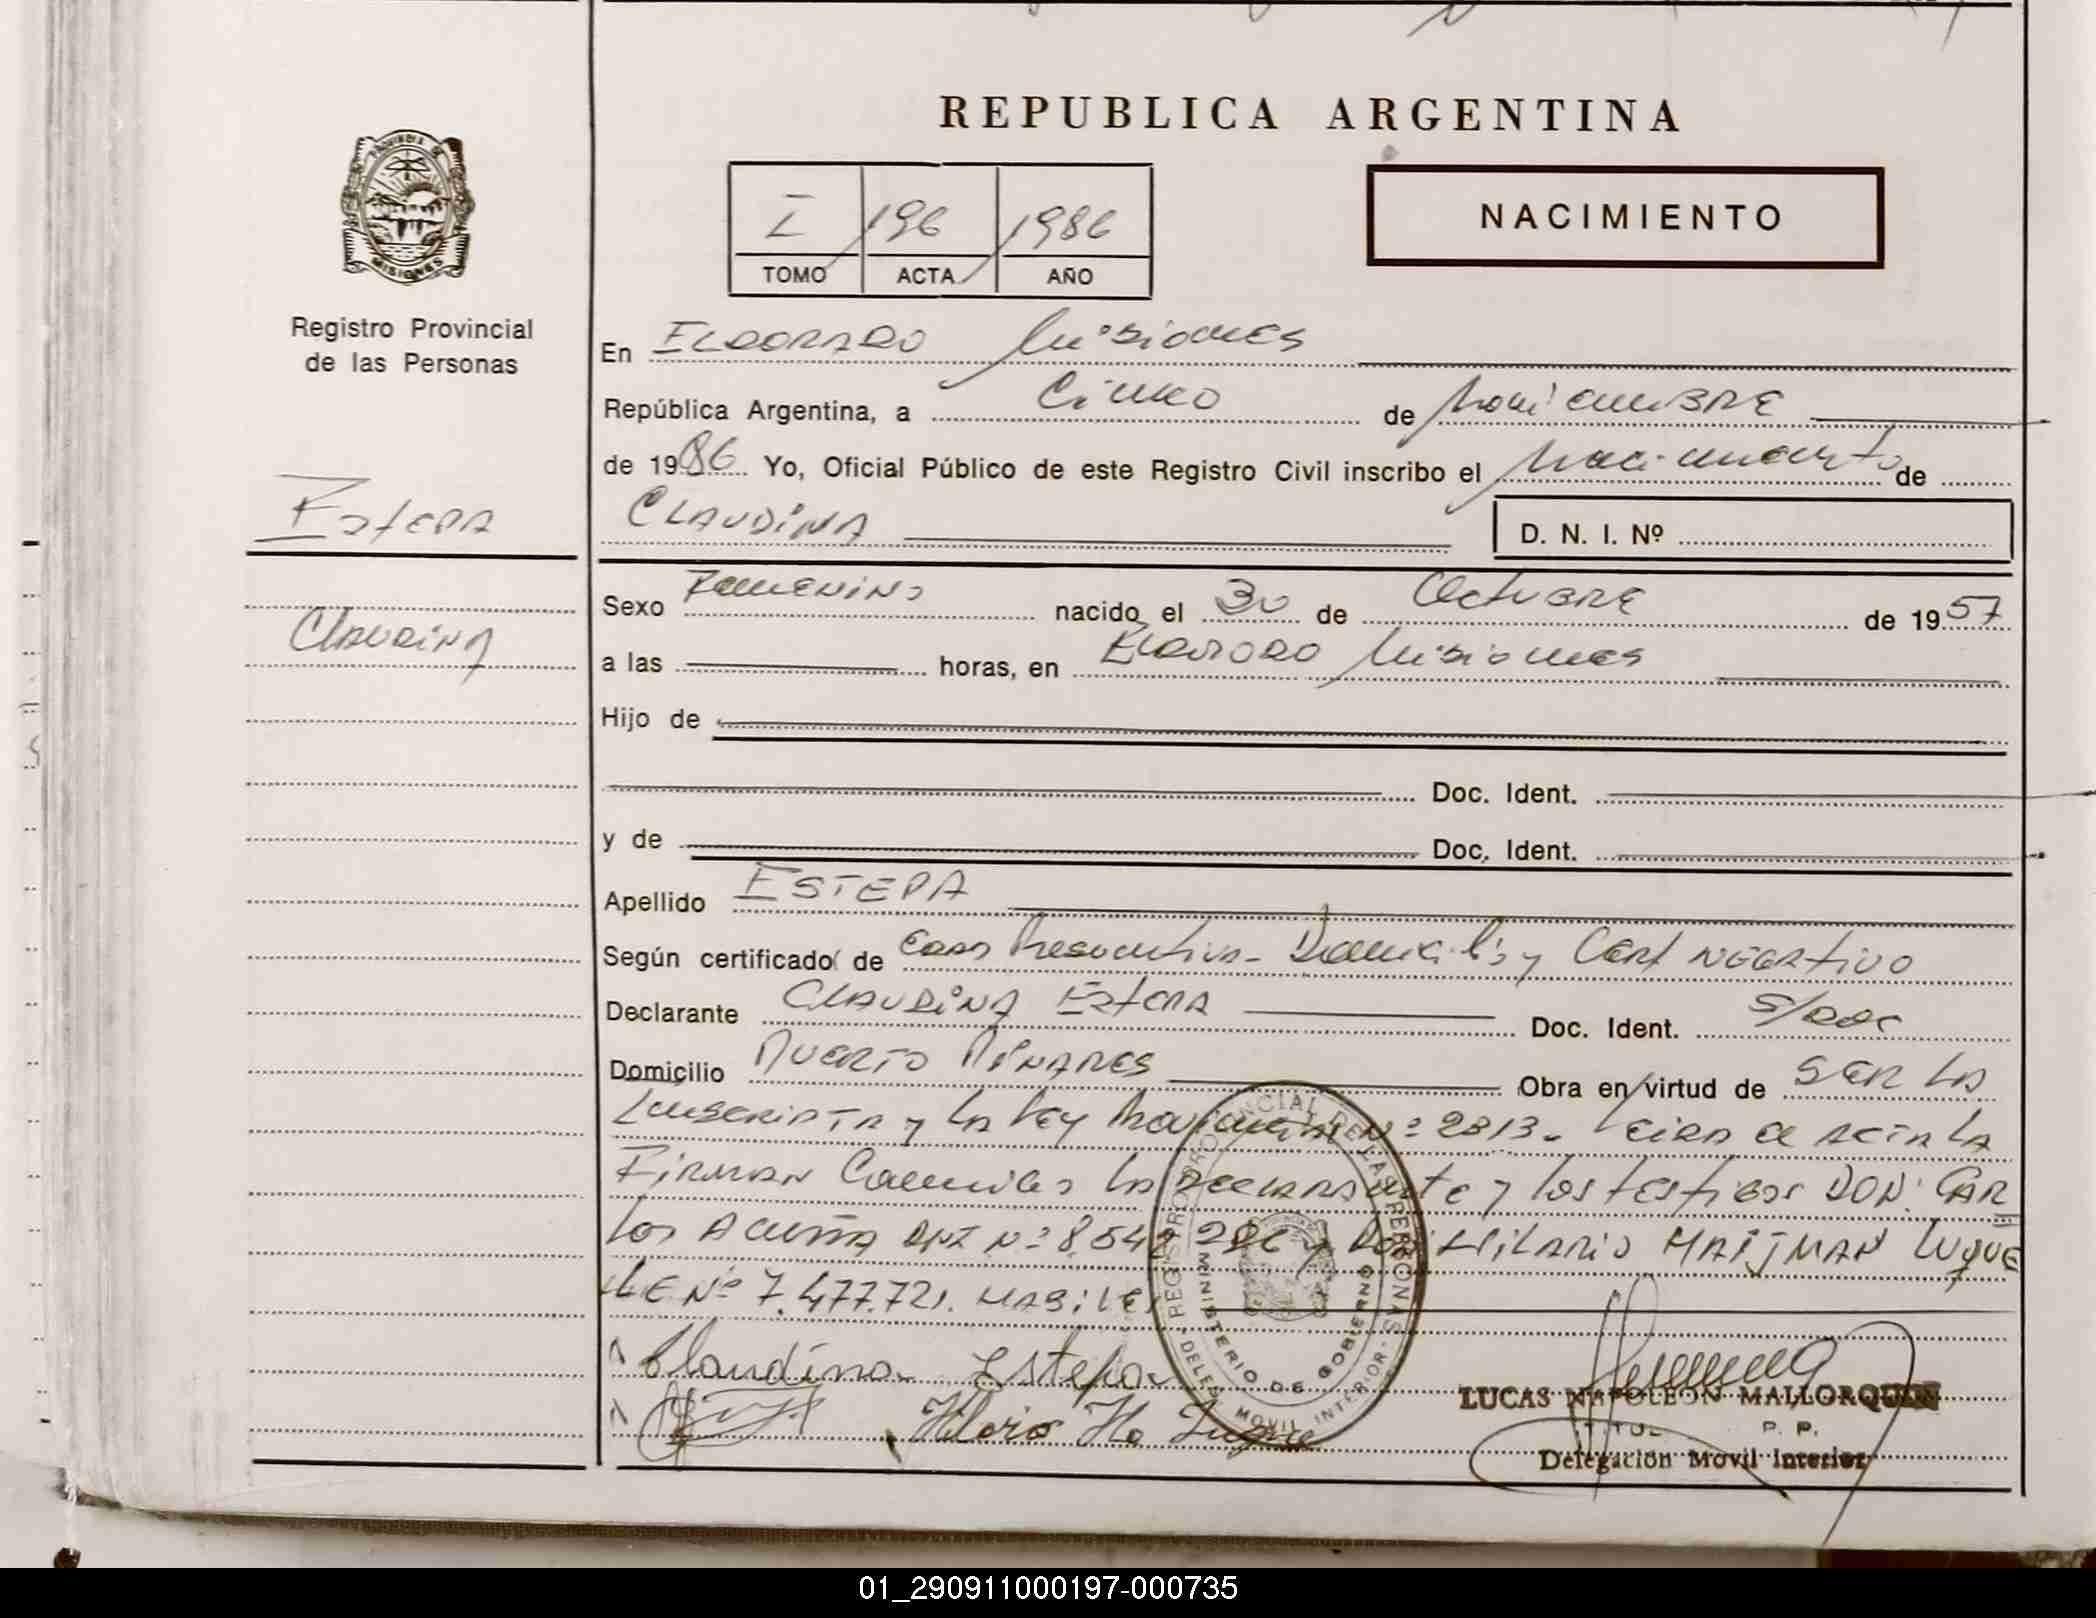 REPUBLICA ARGENTINA
PROVINCIA DE
MISIONES
Registro Provincial
de las Personas
I 196 1986
TOMO ACTA AÑO
NACIMIENTO
En ELDORADO Misiones
República Argentina, a Cinco de Noviembre
de 1986 Yo, Oficial Público de este Registro Civil inscribo el Nacimiento de
CLAUDINA D. N. I. Nº
Estepa
Claudina
Sexo Femenino nacido el 30 de Octubre de 1957
a las horas, en Eldorado Misiones
Hijo de
Doc. Ident.
y de Doc. Ident.
Apellido ESTEPA
Según certificado de Edad Presuntiva - Domicilio y Cert NEGATIVO
Declarante CLAUDINA Estepa Doc. Ident. S/DOC
Domicilio PUERTO PINARES Obra en virtud de SER LA
INSCRIPTA y LA Ley Provincial Nº 2813. Leida el acta LA
FIRMAN Conmigo LA Declarante y los testigos DON: CAR
los ACUÑA DNI Nº 8.54 y Don HILARIO MAIJMAN LUQUE
LE Nº 7.477.721.
Claudina Estepa
Luque
REGISTRO PROVINCIAL DE LAS PERSONAS
MINISTERIO DE GOBIERNO
DELEG MOVIL INTERIOR
LUCAS NAPOLEON MALLORQUIN
P. P.
Delegación Movil Interior
01_290911000197-000735